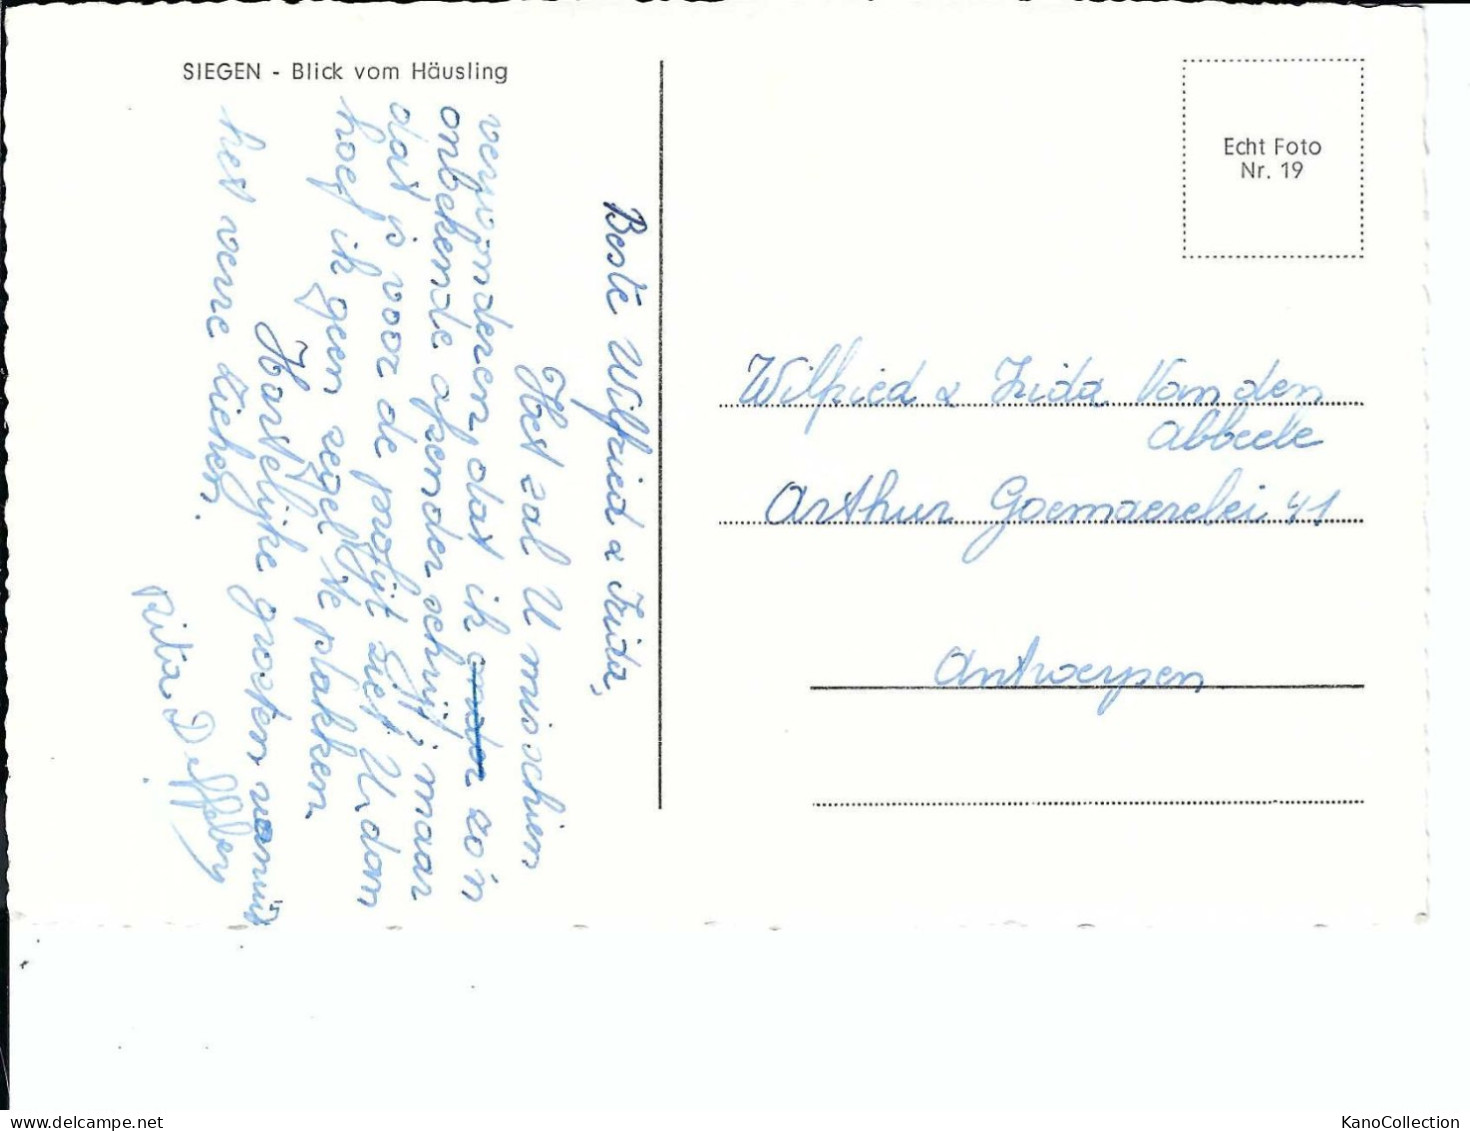 SIEGEN - Blick vom Häusling
Beste Wilfried & Frida,
Het zal U misschien
verwonderen dat ik zo'n
onbekende afzender schrijf; maar
dat is voor de profijt ziet U, dan
hoef ik geen zegel te plakken.
Hartelijke groeten vanuit
het verre Ziehen.
Rita
Echt Foto
Nr. 19
Wilfried & Frida Van den
Abbeele
Arthur Goemaerelei 41
Antwerpen
KanoCollection